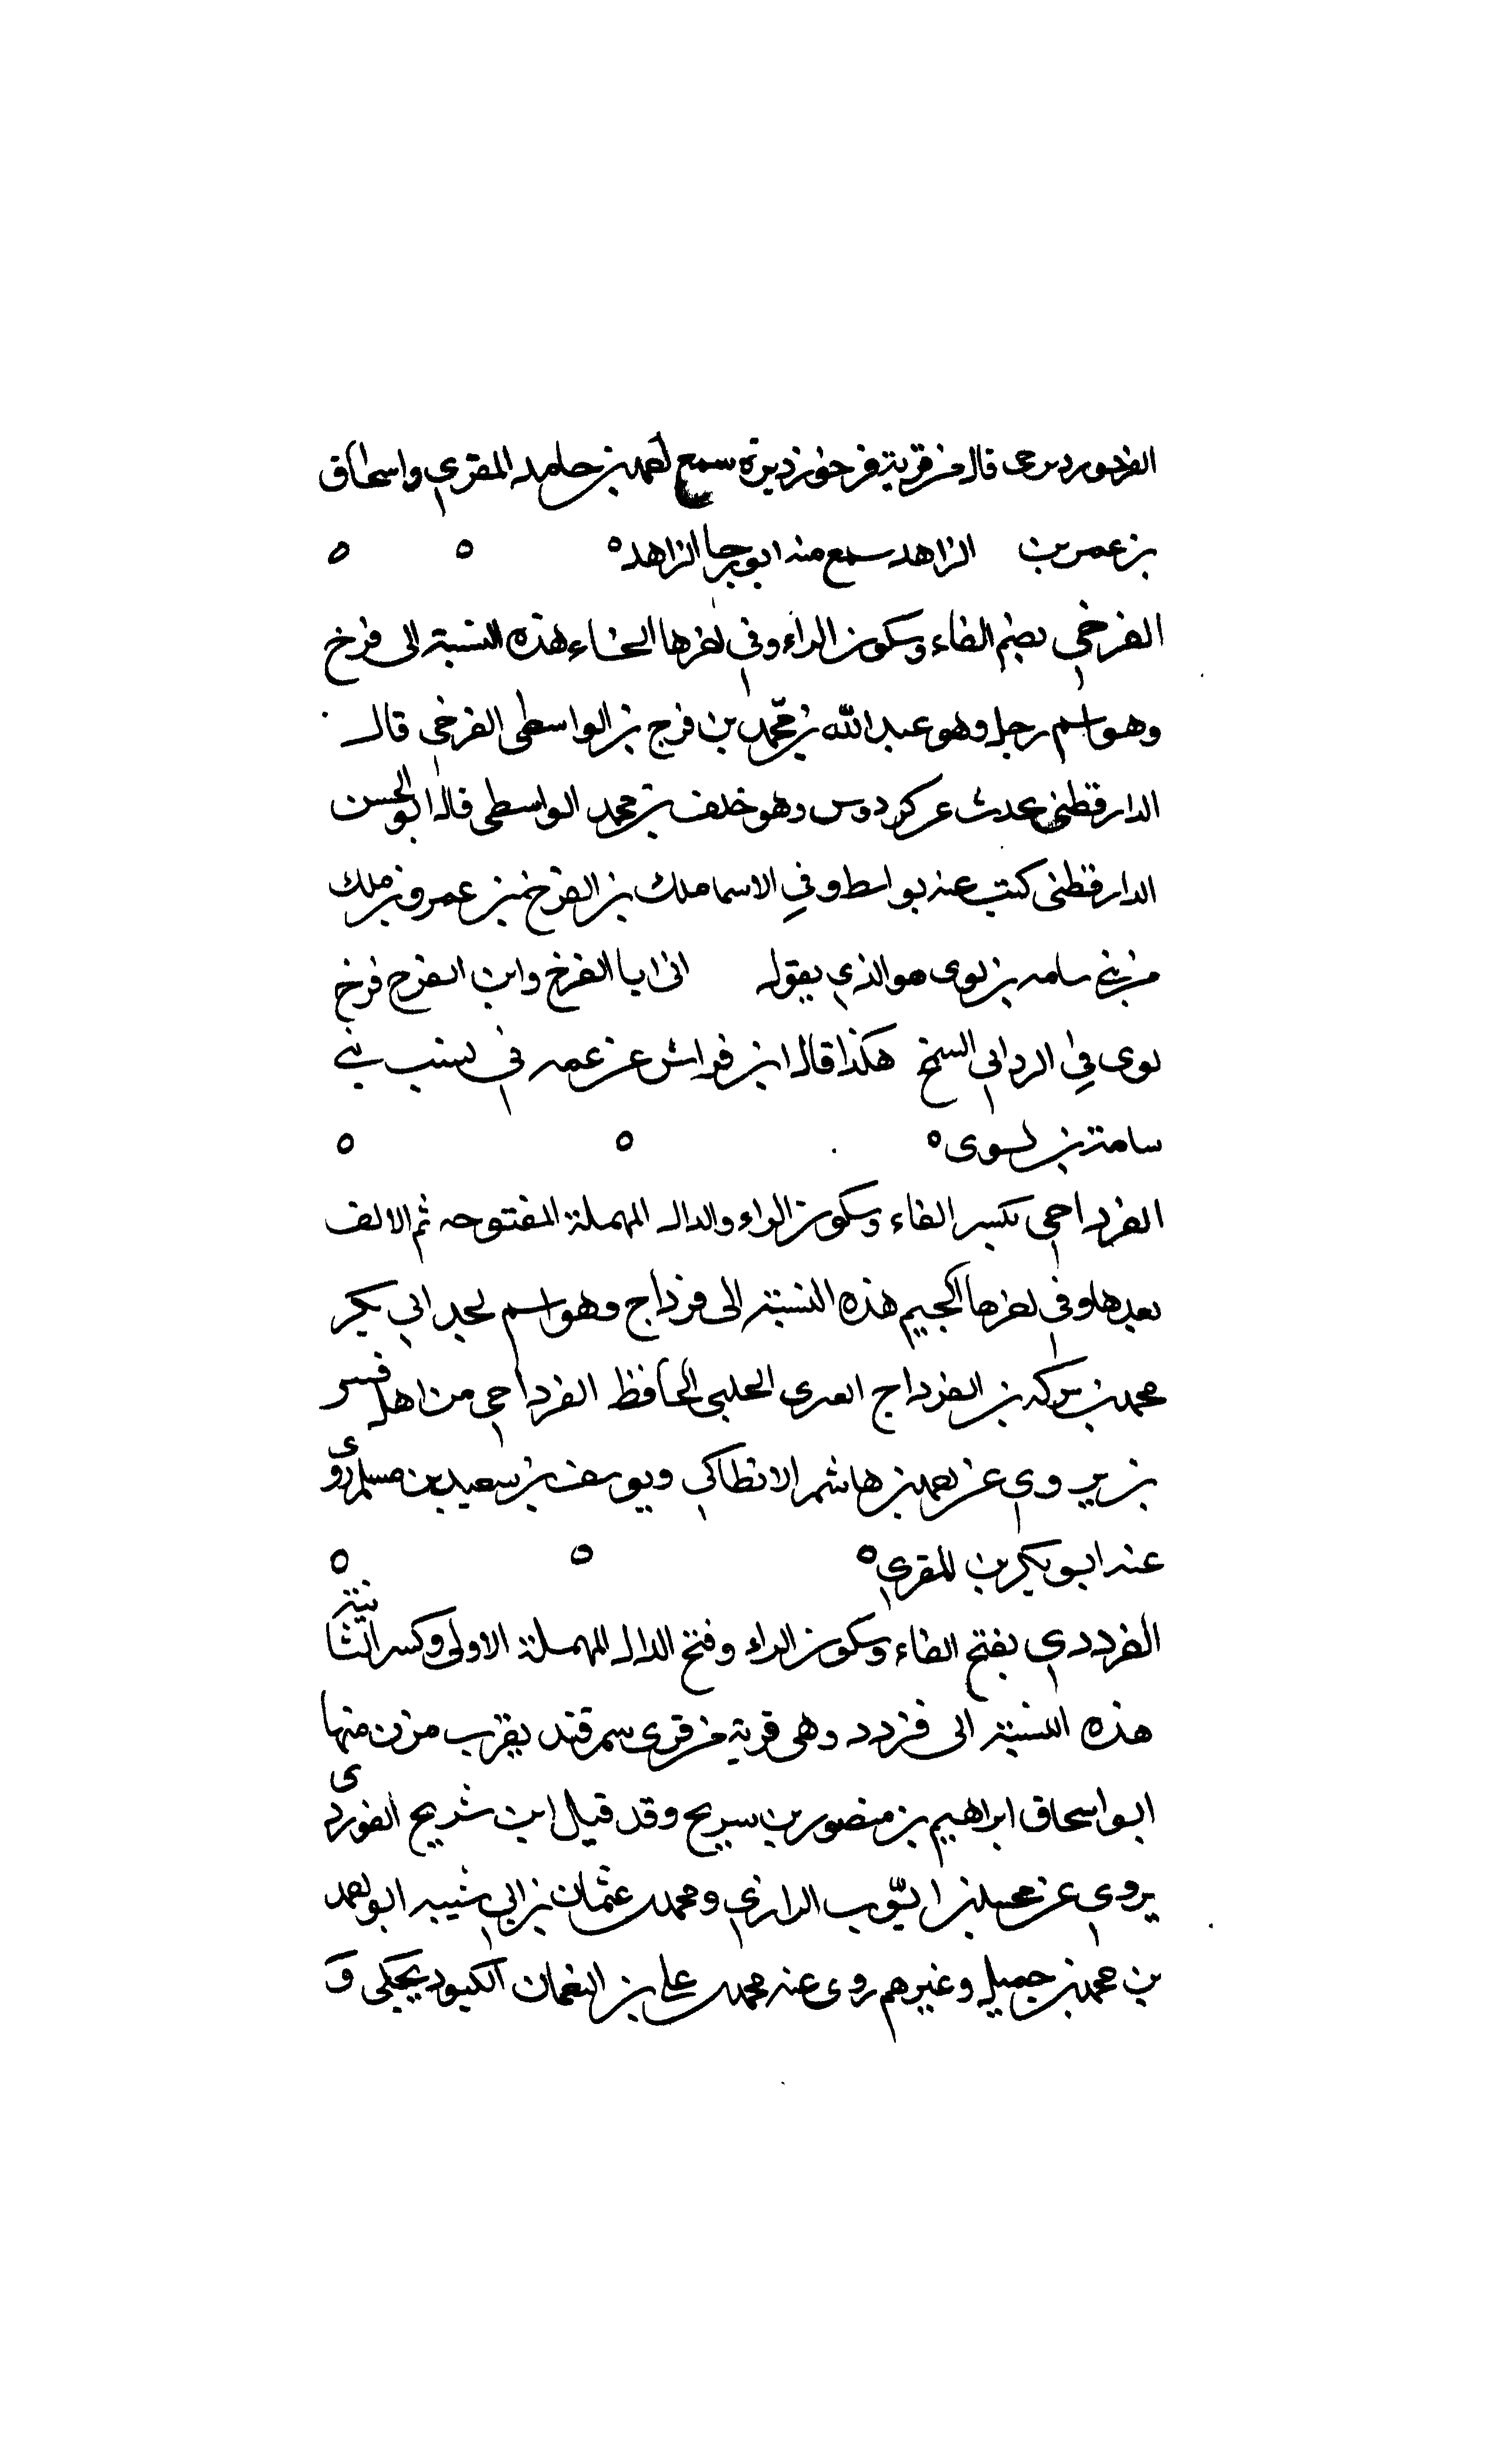 قال من قرية فرخوزديزه سمع احمد بن حامد المقري واسحاق
بن عمر بن الزاهد سمع منه ابو رجا الزاهد ٥ ٥ ٥
الفرخي بضم الفاء وسكون الراء وفي اخرها الخاء هذه النسبة الى فرخ
وهو اسم رجل وهو عبد الله بن محمد بن فرج بن الواسطى الفرخي قال
الدارقطني يحدث عن كردوس وهو خلف بن محمد الواسطى قال ابو الحسن
الدارقطنى كتب عنه بواسط وفي الاسما ملك بن الفرخ بن عمرو بن ملك
من بني سامه بن لوى هو الذي يقول انى ابا الفرخ وابن الفرح فرخ
لوى في السنخ هكذا قال ابن فراش عن عمه في نسب بني
سامة بن لوى ٥ ٥ ٥
الفرداجي بكسر الفاء وسكون الراء والدال المهملة المفتوحه ثم الالف
بعدها وفي اخرها الجيم هذه النسبة الى فرداج وهو اسم لجد ابي بكر
محمد بن بركه بن الفرداج الحلبي الحافظ الفرداجي من اهل قنسر
ين يروي عن احمد بن هاشم الانطاكي ويوسف بن سعيد بن مسلم روى
عنه ابو بكر بن المقري ٥ ٥ ٥
الفرددي بفتح الفاء وسكون الراء وفتح الدال المهملة الاولى وكسر الثانية
هذه النسبة الى فردد وهى قرية من قرى سمرقند بقرب منها
ابو اسحاق ابراهيم بن منصور بن سريح وقد قيل ابن شريح الفرددى
يروي عن محمد بن ايوب الرازي ومحمد بن عثمان بن ابي شيبه ابو احمد
بن محمد بن جميل وغيرهم روى عنه محمد بن علي بن النعمان الكبوذنجكى و